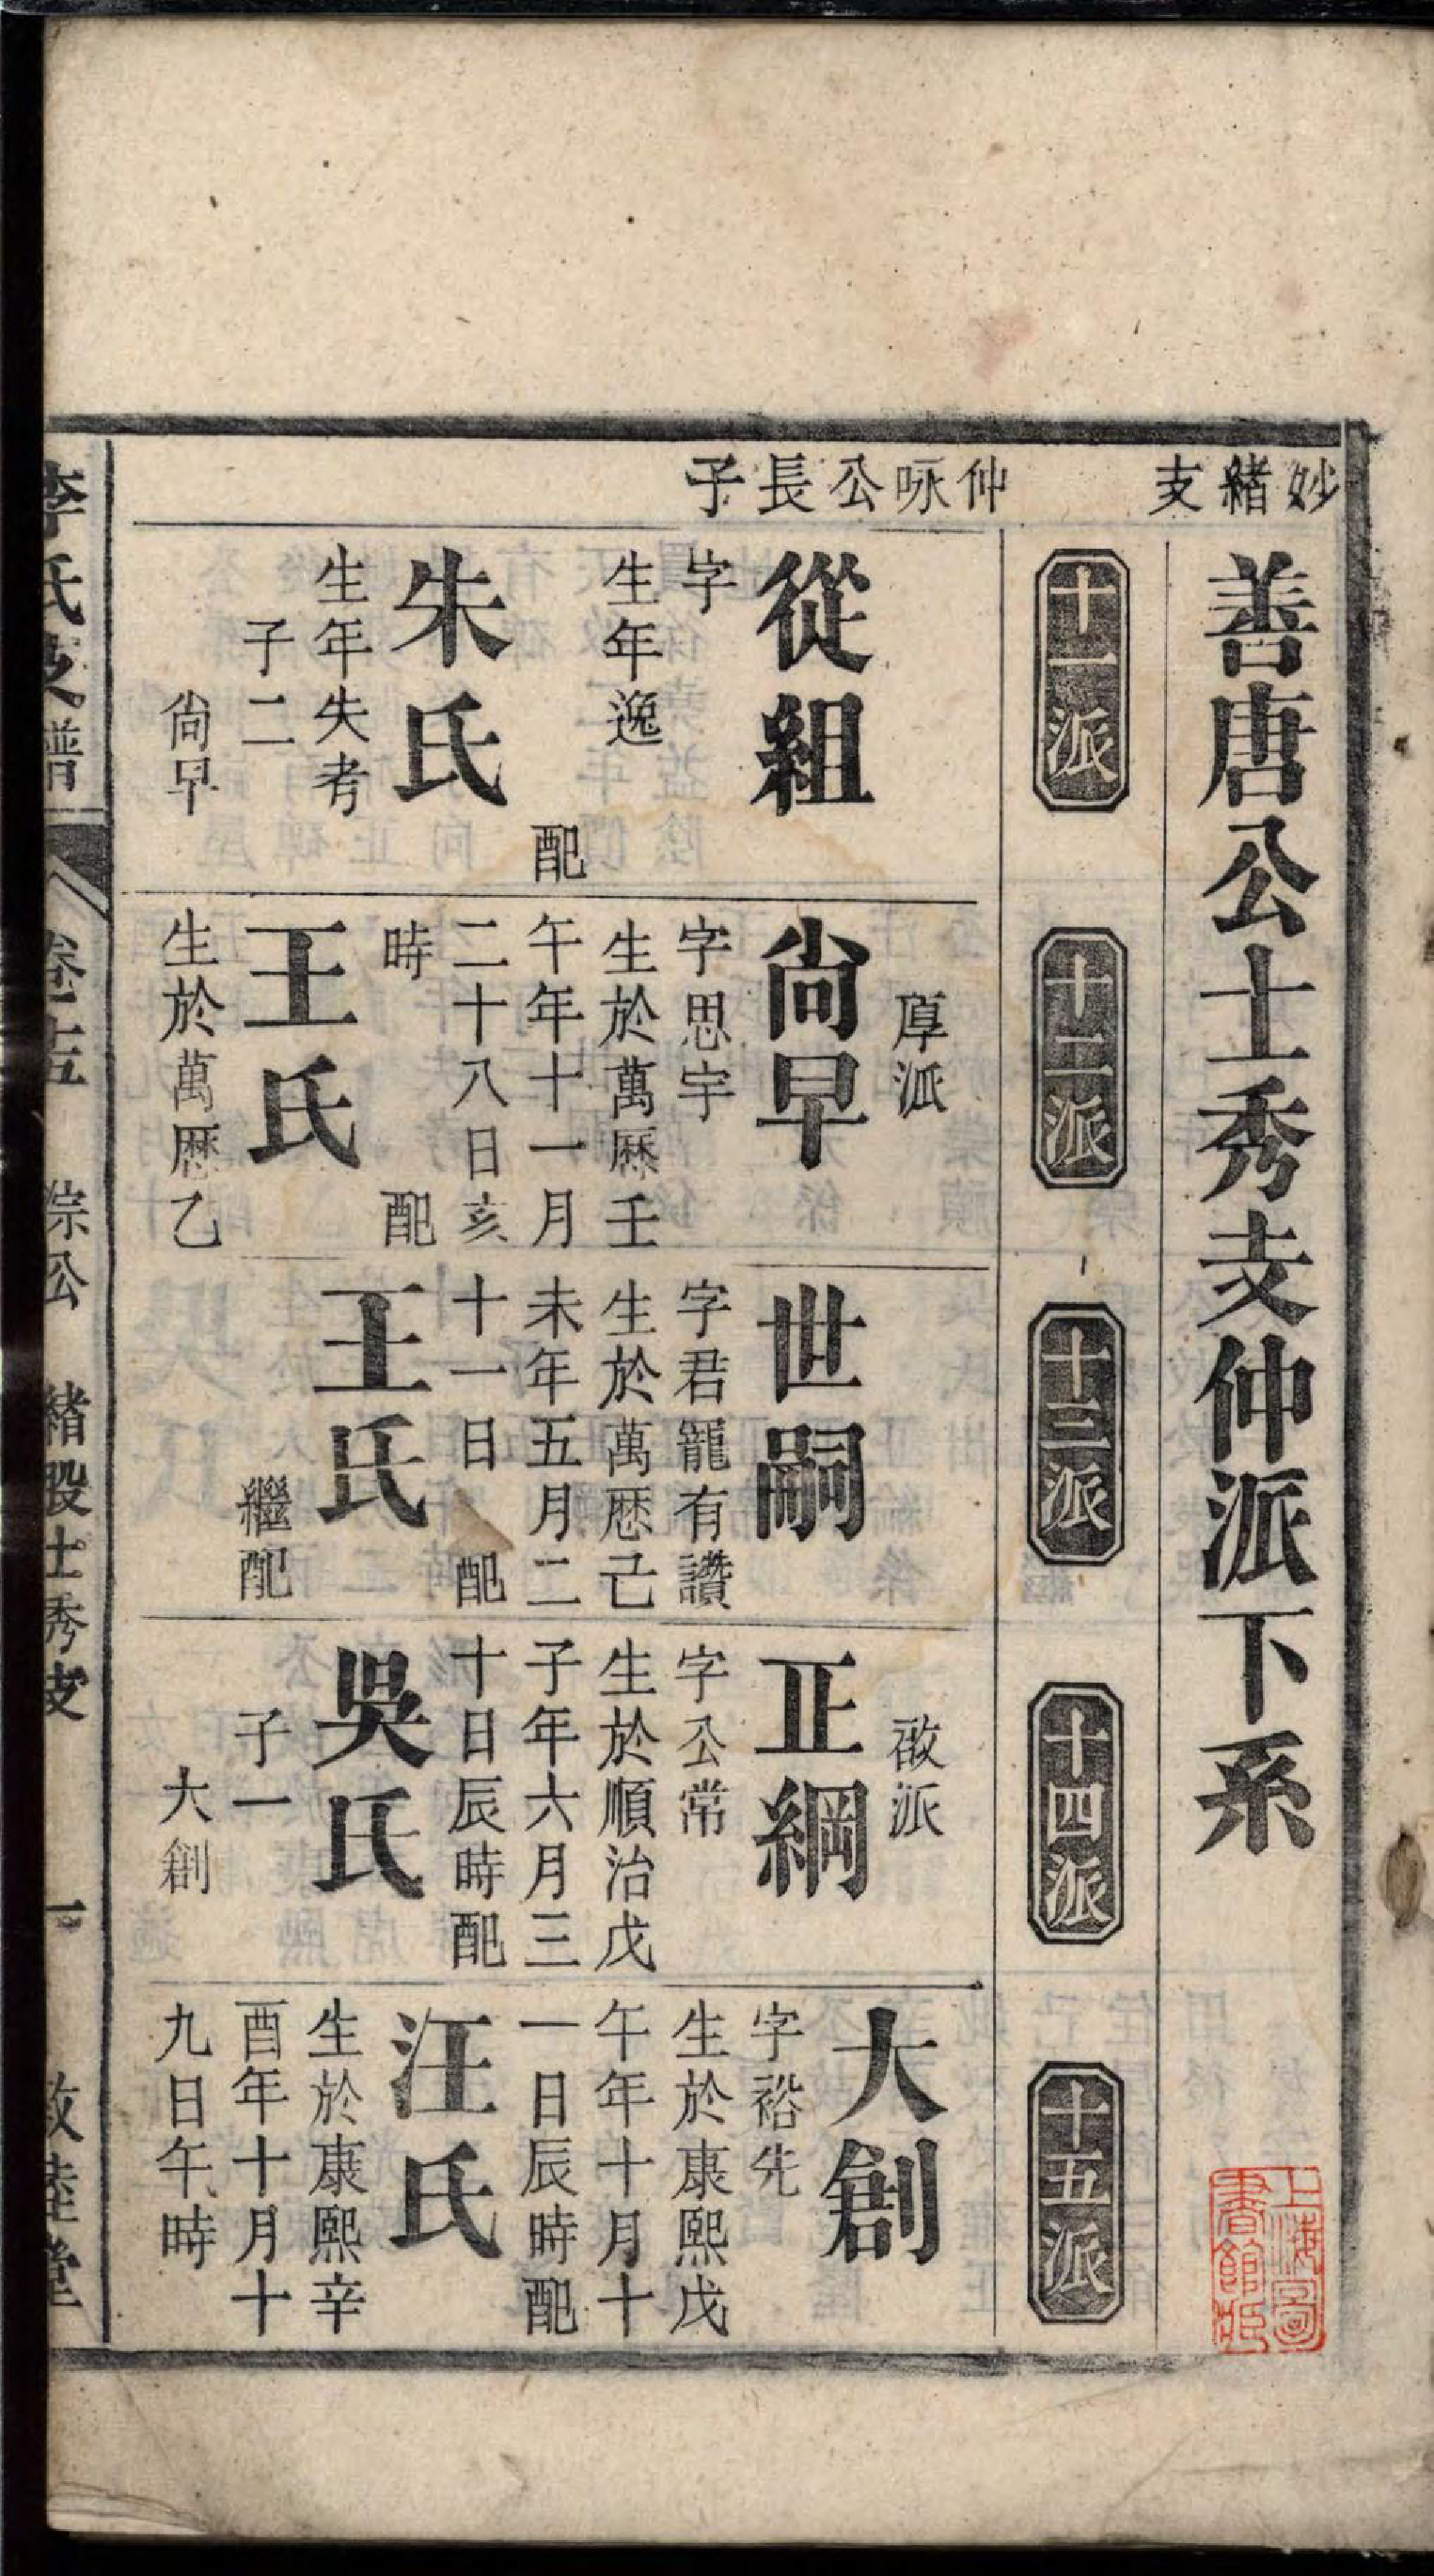 妙緒支
仲咏公長子
善唐公士秀支仲派下系
十一派
十二派
十三派
十四派
十五派
從組
字
生年逸
配
朱氏
生年失考
子二
尙早
厚派
尙早
字思宇
生於萬厯壬
午年十一月
二十八日亥
時 配
王氏
生於萬厯乙
世嗣
字君寵有讚
生於萬厯己
未年五月二
十一日 配
王氏
繼配
啟派
正綱
字公常
生於順治戊
子年六月三
十日辰時配
吳氏
子一
大創
大創
字裕先
生於康熙戊
午年十月十
一日辰時配
汪氏
生於康熙辛
酉年十月十
九日午時
李氏支譜 卷十五 綜公 緒股士秀支 一 敦睦堂
上海圖
書館藏